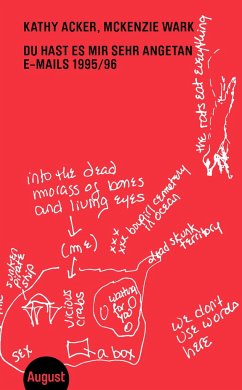 KATHY ACKER, MCKENZIE WARK
DU HAST ES MIR SEHR ANGETAN
E-MAILS 1995/96
the rats eat everything
into the dead
morass of bones
and living eyes
(ME)
xxx
xxx
xxx
buryin cemetery
in ocean
dead skunk
territory
sunken
pirate
ship
vicious
crabs
waiting
for
you
we don't
use words
here
SEX
a box
August